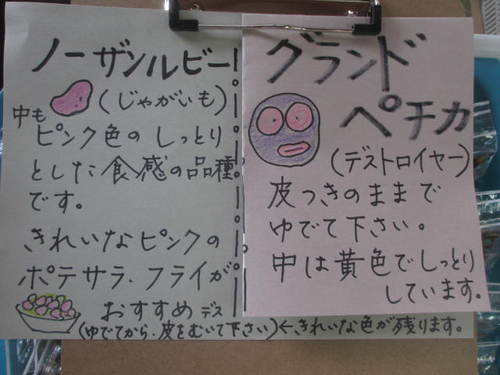 ノーザンルビー
(じゃがいも)
中も
ピンク色のしっとり
とした食感の品種
です。
きれいなピンクの
ポテサラ・フライが
おすすめデス
(ゆでてから、皮をむいて下さい)←きれいな色が残ります。
グランド
ペチカ
(デストロイヤー)
皮つきのままで
ゆでて下さい。
中は黄色でしっとり
しています。